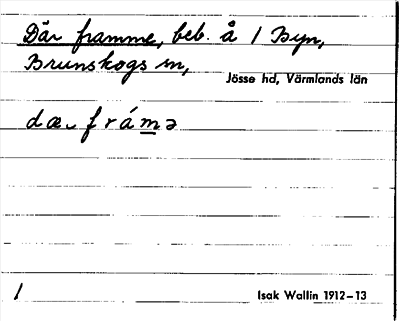 Där framme, beb. å 1 Byn,
Brunskogs sn,
Jösse hd, Värmlands län
dæ⌣ fráma̱ə
1
Isak Wallin 1912–13